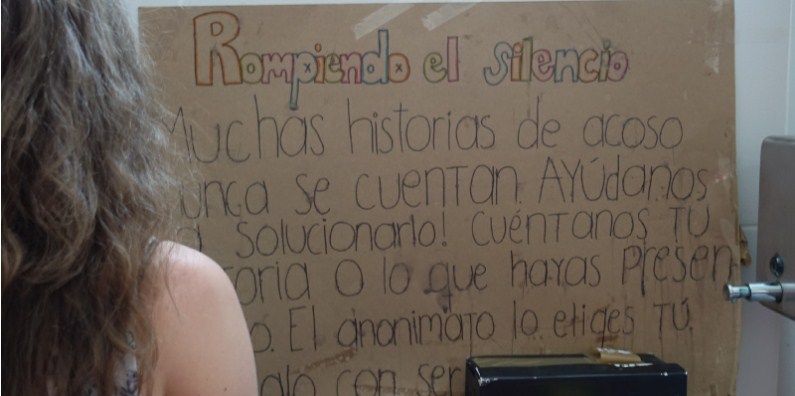 Rompiendo el silencio
Muchas historias de acoso
nunca se cuentan. AYÚdanos
a solucionarlo! cuéntanos TÚ
o lo que hayas presen
El anonimato lo eliges TÚ.
con ser